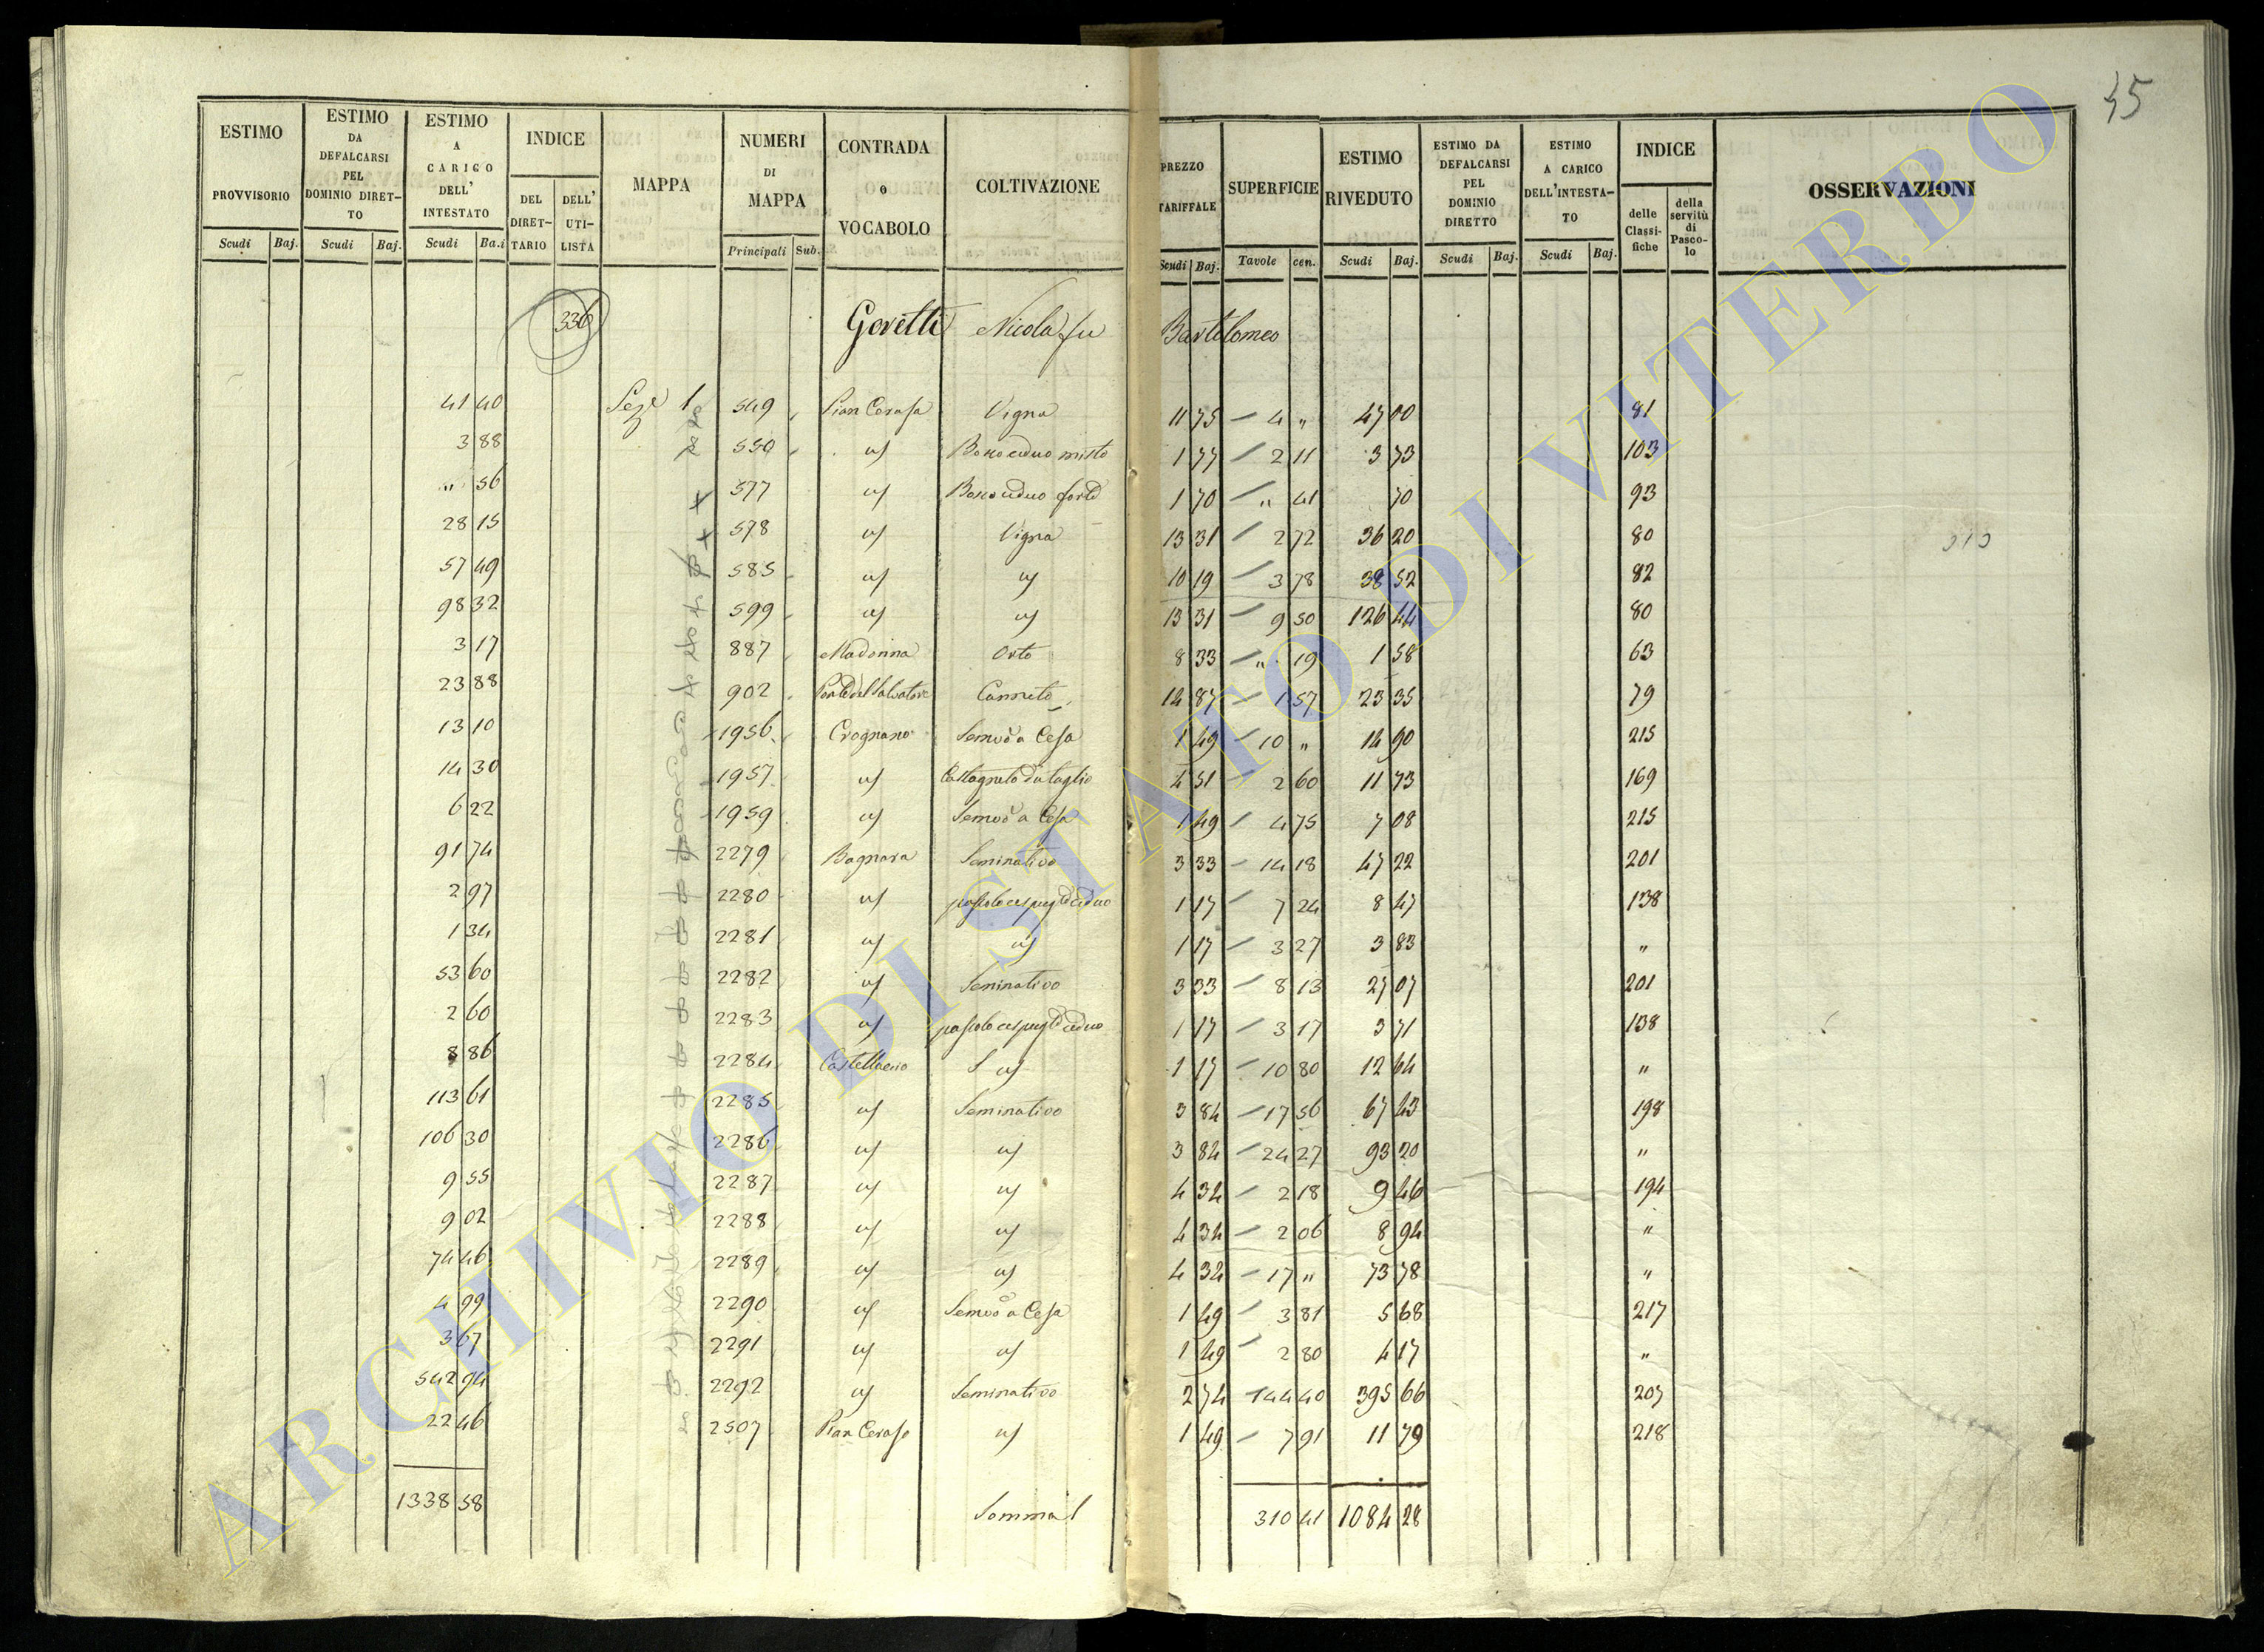 45
ESTIMO PROVVISORIO Scudi Baj.
ESTIMO DA DEFALCARSI PEL DOMINIO DIRETTO Scudi Baj.
ESTIMO A CARICO DELL' INTESTATO Scudi Ba.i
INDICE DEL DIRETTARIO DELL' UTILISTA
MAPPA
NUMERI DI MAPPA Principali Sub.
CONTRADA o VOCABOLO
COLTIVAZIONE
PREZZO TARIFFALE Scudi Baj.
SUPERFICIE Tavole cen.
ESTIMO RIVEDUTO Scudi Baj.
ESTIMO DA DEFALCARSI PEL DOMINIO DIRETTO Scudi Baj.
ESTIMO A CARICO DELL'INTESTATO Scudi Baj.
INDICE delle Classifiche della servitù di Pascolo
OSSERVAZIONI
336 Goretti Nicola fu Bartolomeo
41 40 Seze 1 549 Pian Cerasa Vigna 11 75 4 " 47 00 81
3 88 550 id Bosco ceduo misto 1 77 2 11 3 73 103
" 56 577 id Bosco ceduo forte 1 70 " 41 70 93
28 15 578 id Vigna 13 31 2 72 36 20 80
57 49 585 id id 10 19 3 78 38 52 82
98 32 599 id id 13 31 9 50 126 44 80
3 17 887 Madonna Orto 8 33 " 19 1 58 63
23 88 902 Ponte del Salvatore Canneto 14 87 1 57 23 35 79
13 10 1956 Crognano Semvo a Cesa 1 49 10 " 14 90 215
14 30 1957 id Castagneto da taglio 4 51 2 60 11 73 169
6 22 1959 id Semvo a Cesa 1 49 4 75 7 08 215
91 74 2279 Bagnara Seminativo 3 33 14 18 47 22 201
2 97 2280 id pascolo cespugto ceduo 1 17 7 24 8 47 138
1 34 2281 id id 1 17 3 27 3 83 "
53 60 2282 id Seminativo 3 33 8 13 27 07 201
2 60 2283 id pascolo cespugto ceduo 1 17 3 17 3 71 138
8 86 2284 id 1 17 10 80 12 64 "
113 61 2285 id Seminativo 3 84 17 56 67 43 198
106 30 2286 id id 3 84 24 27 93 20 "
9 55 2287 id id 4 34 2 18 9 46 194
9 02 2288 id id 4 34 2 06 8 94 "
74 46 2289 id id 4 34 17 " 73 78 "
4 99 2290 id Semvo a Cesa 1 49 3 81 5 68 217
3 67 2291 id id 1 49 2 80 4 17 "
542 94 2292 id Seminativo 2 74 144 40 395 66 207
22 46 2507 Pian Ceraso id 1 49 7 91 11 79 218
1338 58 Somma 310 41 1084 28
ARCHIVIO DI STATO DI VITERBO